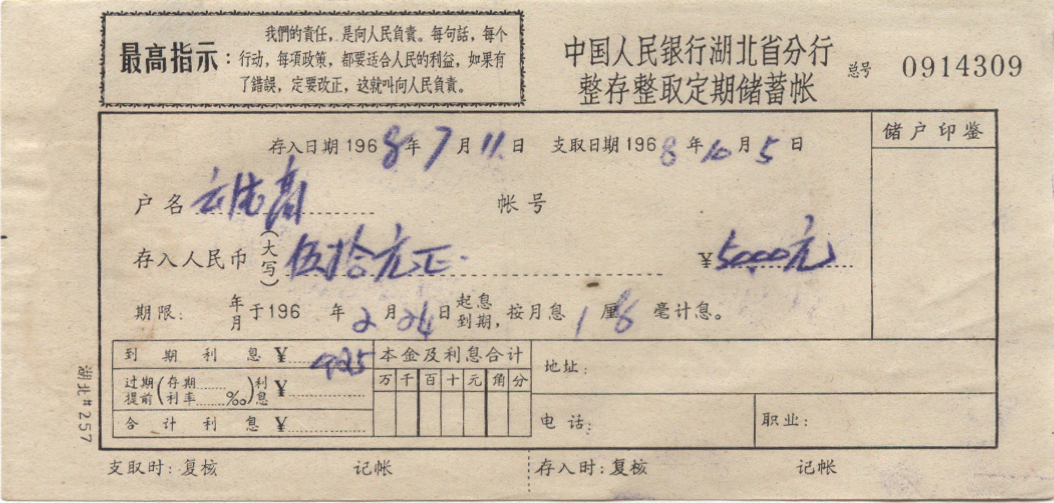 最高指示：
我們的責任，是向人民負責。每句話，每个
行动，每項政策，都要适合人民的利益，如果有
了錯誤，定要改正，这就叫向人民負責。
中国人民銀行湖北省分行
整存整取定期储蓄帐
总号 0914309
存入日期 1968年7月11日 支取日期 1968年10月5日
储户印鉴
户名 高
帐号
存入人民币（大写）伍拾元正. ¥5000元
期限： 年月于196 年2月24日起息到期，按月息1厘8毫计息。
到期利息 ¥
本金及利息合计
万 千 百 十 元 角 分
过期提前（存期……利率……‰）利息 ¥
合计利息 ¥
地址：
电话：
职业：
湖北#257
支取时：复核 记帐 存入时：复核 记帐